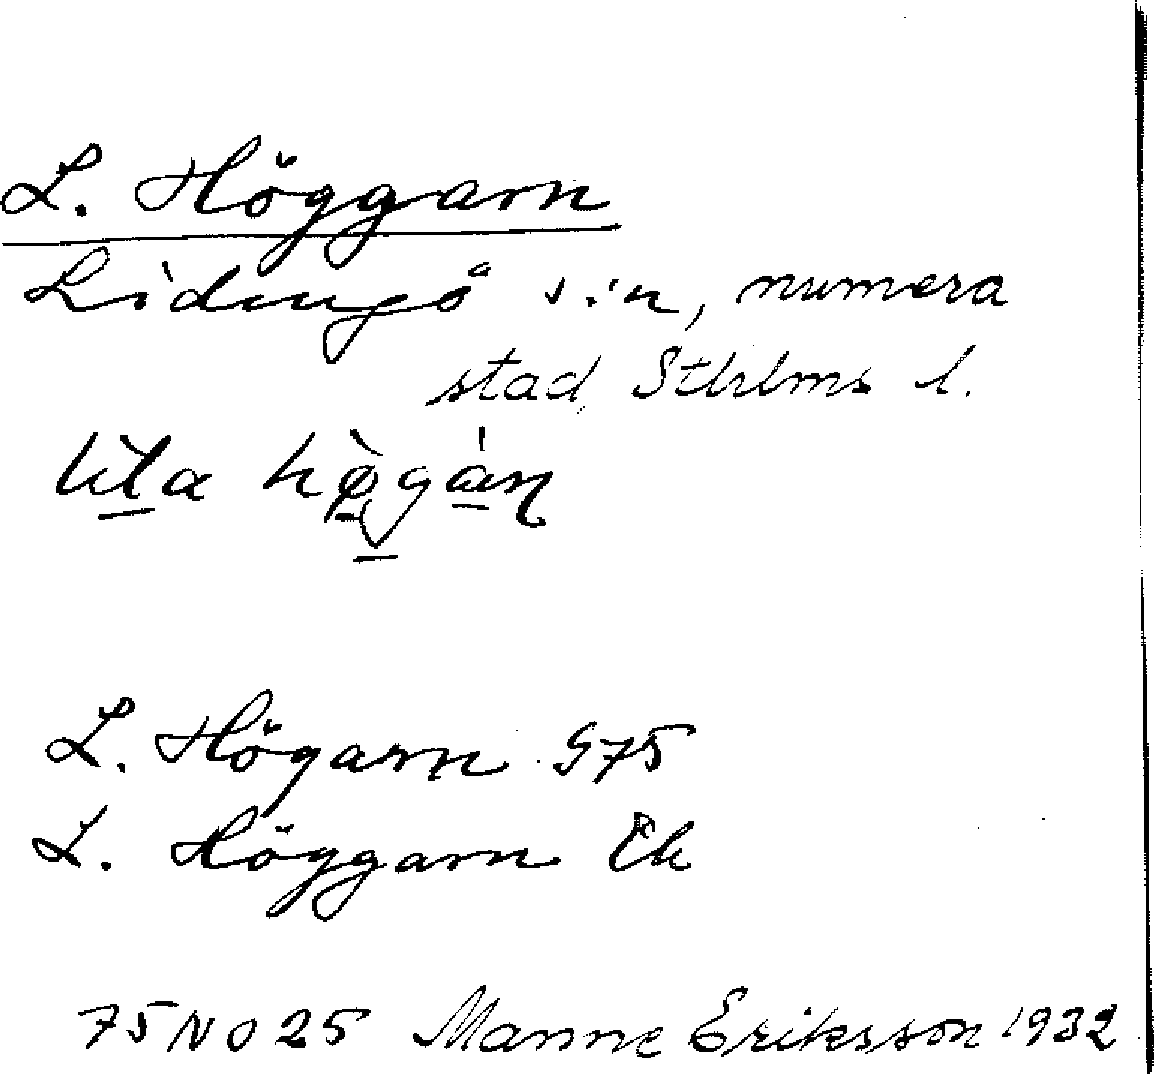 L. Höggarn
Lidingö s:n, numera
stad, Sthlms l.
L. Högarn G75
L. Höggarn Ek
75 NO 25 Manne Eriksson 1932